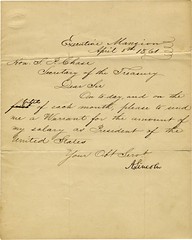 Executive Mansion
April 5th 1861
Hon. S. P. Chase
Secretary of the Treasury
Dear Sir
On to day, and on the
of each month, please to send
me a Warrant for the amount of
my salary as President of the
United States
Your Obt Servt
A Lincoln